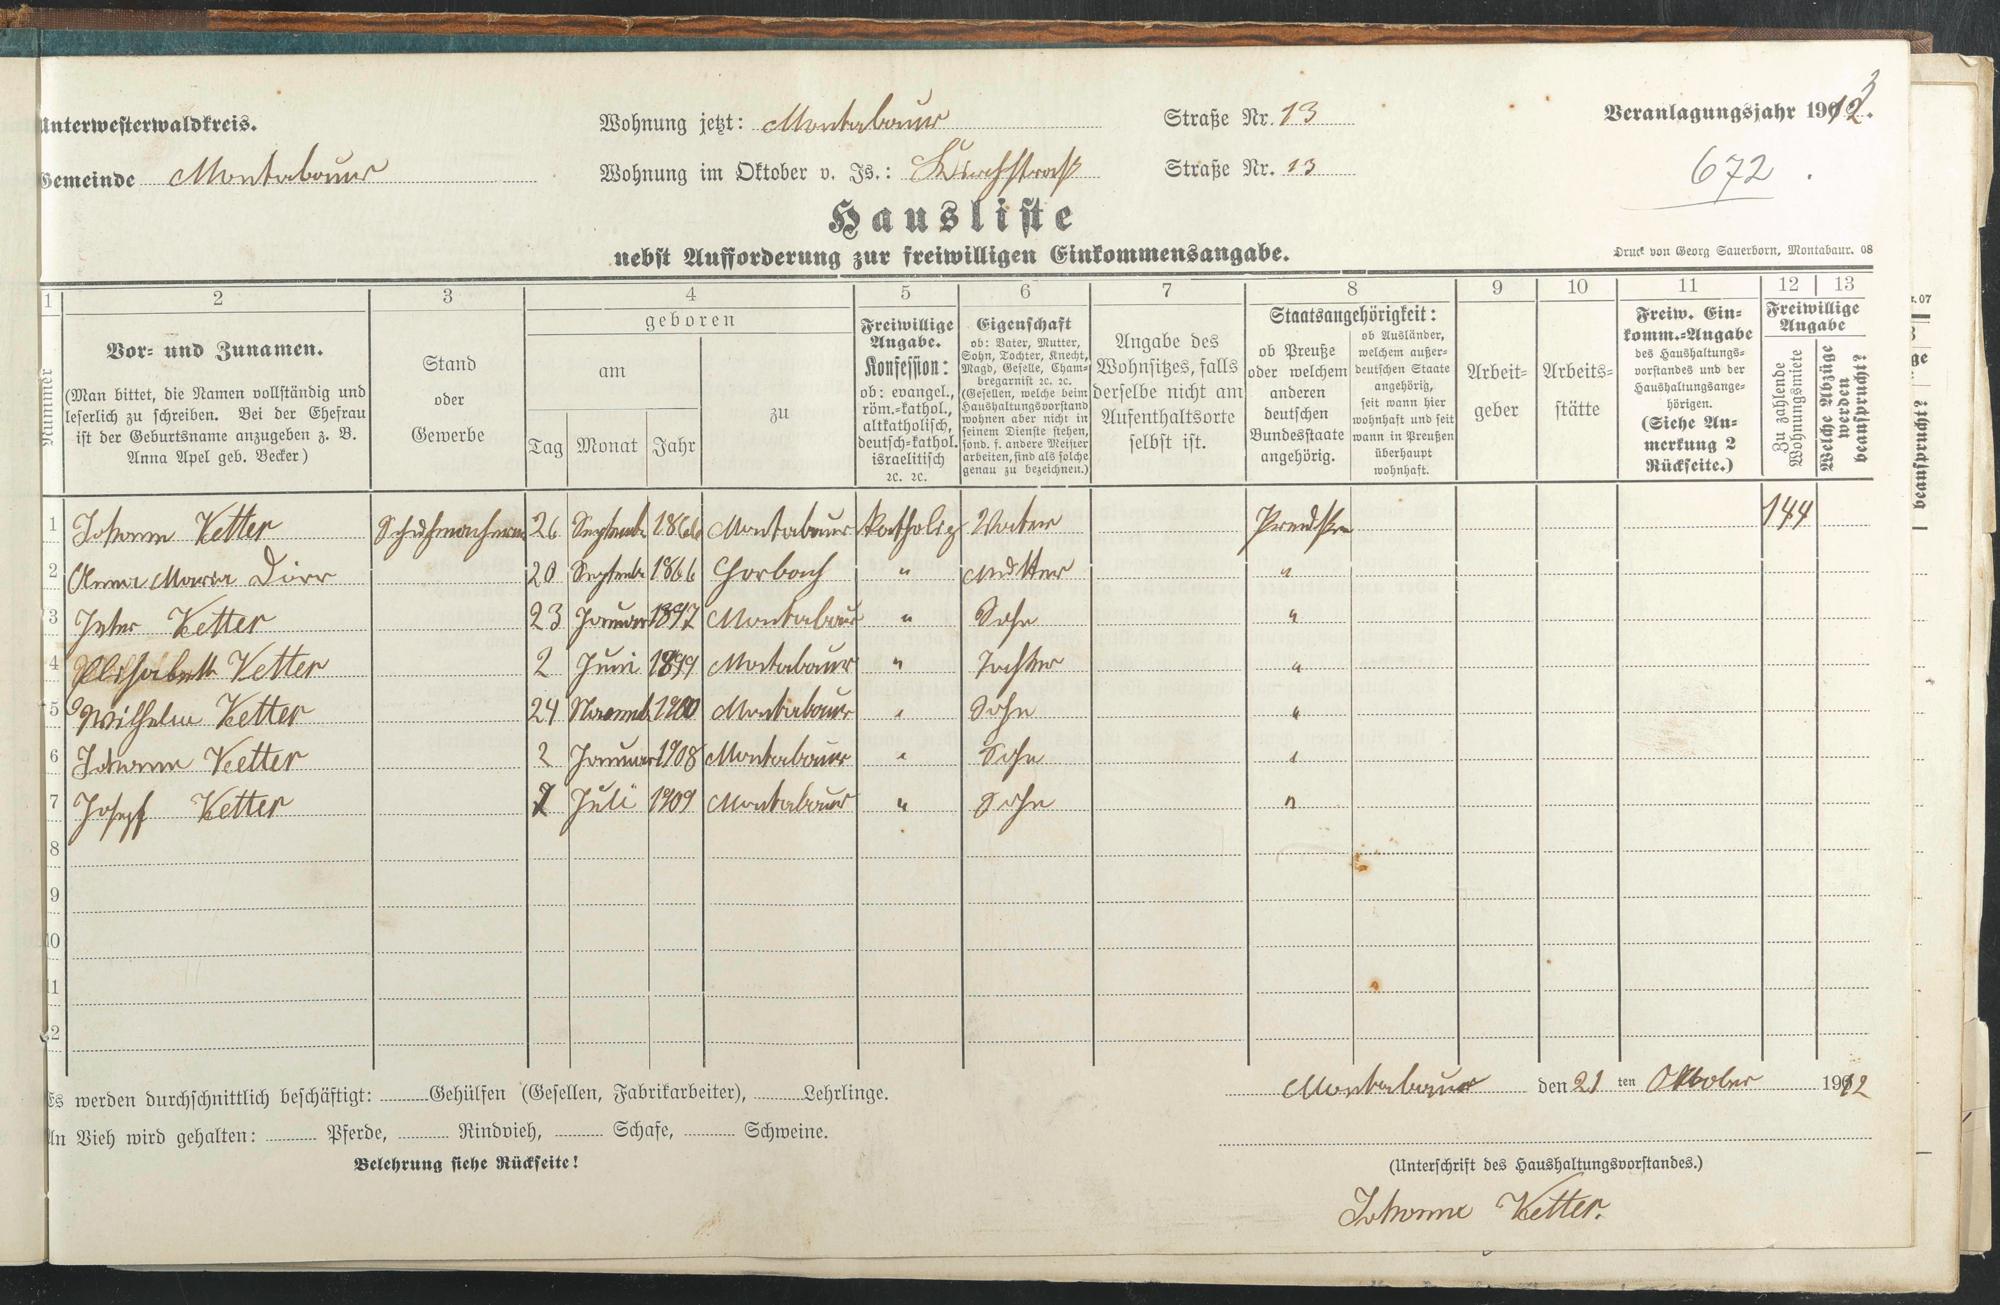 Unterwesterwaldkreis.
Wohnung jetzt: Montabaur Straße Nr. 13
Veranlagungsjahr 1912.
3
Gemeinde Montabaur
Wohnung im Oktober v. Js.: Kirchstraß Straße Nr. 13
672
Hausliste
nebst Aufforderung zur freiwilligen Einkommensangabe.
Druck von Georg Sauerborn, Montabaur. 08
1 2 3 4 5 6 7 8 9 10 11 12 13
Nummer
Vor- und Zunamen.
(Man bittet, die Namen vollständig und
leserlich zu schreiben. Bei der Ehefrau
ist der Geburtsname anzugeben z. B.
Anna Apel geb. Becker)
Stand
oder
Gewerbe
geboren
am
Tag Monat Jahr
zu
Freiwillige
Angabe.
Konfession:
ob: evangel.,
röm.-kathol.,
altkatholisch,
deutsch-kathol.
israelitisch
2c. 2c.
Eigenschaft
ob: Vater, Mutter,
Sohn, Tochter, Knecht,
Magd, Geselle, Cham-
bregarnist 2c. 2c.
(Gesellen, welche beim
Haushaltungsvorstand
wohnen aber nicht in
seinem Dienste stehen,
sond. f. andere Meister
arbeiten, sind als solche
genau zu bezeichnen.)
Angabe des
Wohnsitzes, falls
derselbe nicht am
Aufenthaltsorte
selbst ist.
Staatsangehörigkeit:
ob Preuße
oder welchem
anderen
deutschen
Bundesstaate
angehörig.
ob Ausländer,
welchem außer-
deutschen Staate
angehörig,
seit wann hier
wohnhaft und seit
wann in Preußen
überhaupt
wohnhaft.
Arbeit-
geber
Arbeits-
stätte
Freiw. Ein-
komm.-Angabe
des Haushaltungs-
vorstandes und der
Haushaltungsange-
hörigen.
(Siehe An-
merkung 2
Rückseite.)
Freiwillige
Angabe
Zu zahlende
Wohnungsmiete
Welche Abzüge
werden
beansprucht?
1 Johann Ketter 26 Septemb 1866 Montabaur Katholig Vater 144
2 Anna Maria Dörr 20 Septemb 1866 Horbach " Mutter "
3 Peter Ketter 23 Januar 1897 Montabaur " Sohn "
4 Elisabeth Ketter 2 Juni 1899 Montabaur " Tochter "
5 Wilhelm Ketter 24 Novemb 1900 Montabaur " Sohn "
6 Johann Ketter 2 Januar 1908 Montabaur " Sohn "
7 Josepf Ketter Juli 1909 Montabaur " Sohn "
8
9
10
11
12
Es werden durchschnittlich beschäftigt: Gehülfen (Gesellen, Fabrikarbeiter), Lehrlinge.
Montabaur den 21 ten Oktober 1912
An Vieh wird gehalten: Pferde, Rindvieh, Schafe, Schweine.
Belehrung siehe Rückseite!
(Unterschrift des Haushaltungsvorstandes.)
Johann Ketter.